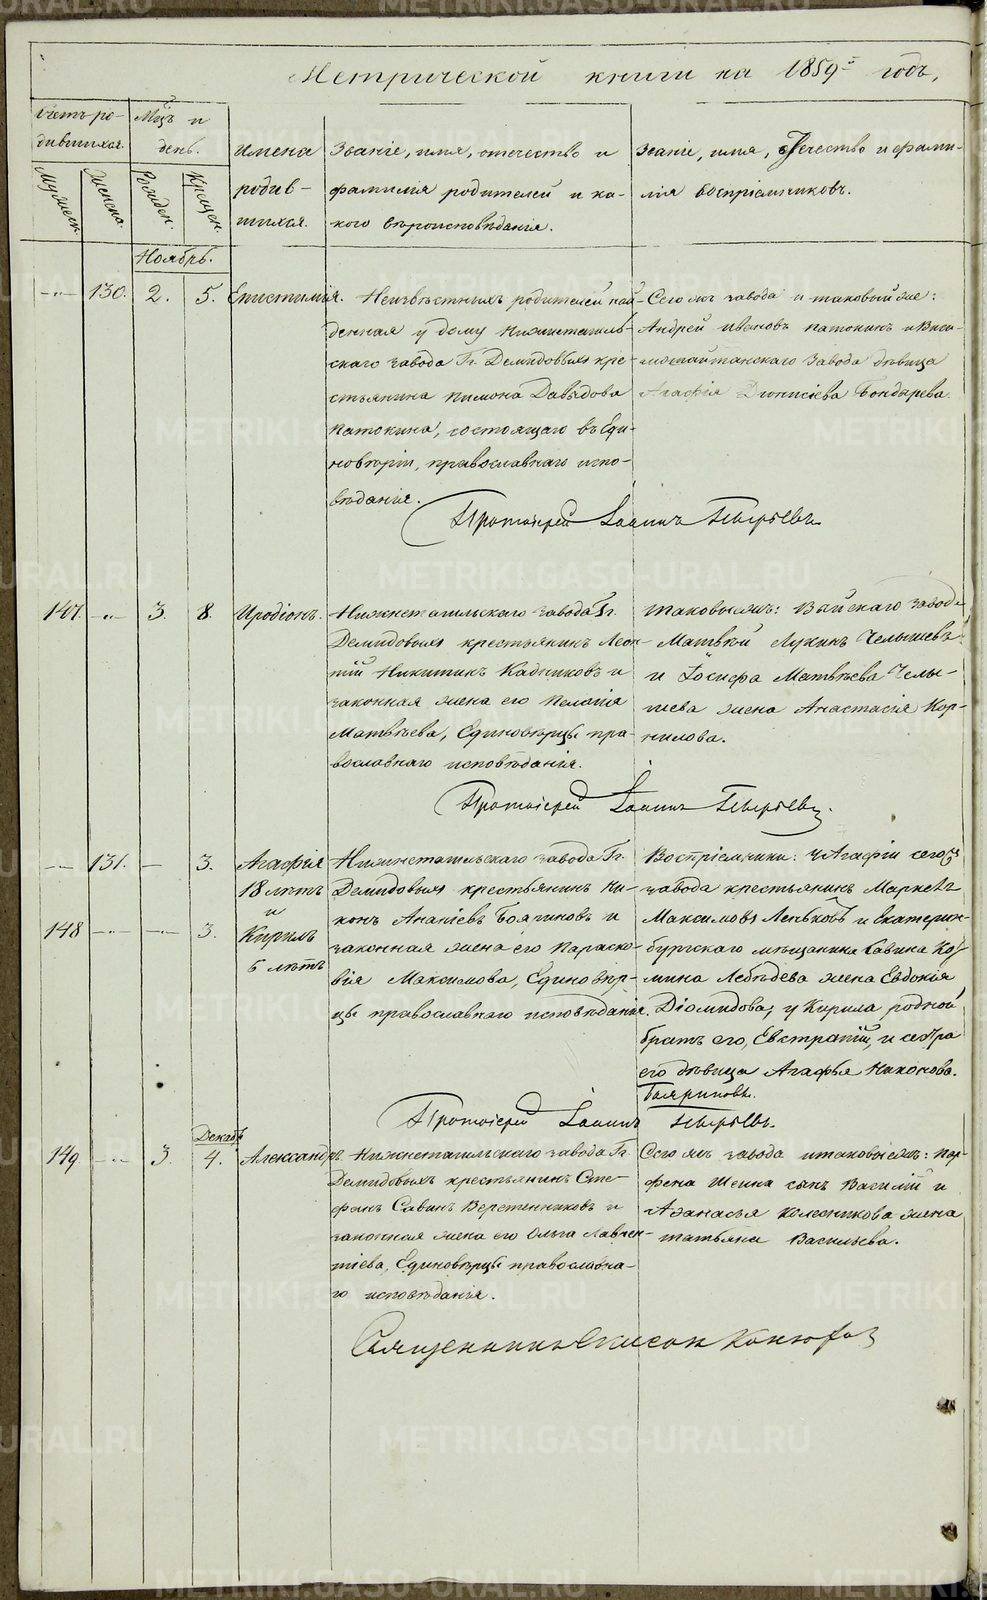 Метрической книги на 1859й годъ,
Счетъ ро-
дившихся.
Мѣсѧцъ и
день.
Мужеск.
Женска.
Рожден.
Крещен.
Имена
родив-
шихся.
Званіе, имя, отечество и
фамилія родителей и ка-
кого вѣроисповѣданія.
Званіе, имя, отечество и фами-
лія воспріемниковъ.
Ноябрь.
130. 2. 5. Епистимія.
Неизвѣстныхъ родителей най-
денная у дому Нижнетагиль-
скаго завода Гг. Демидовыхъ кре-
стьянина Пимона Давыдова
Патокина, состоящаго въ еди-
новѣріи, православнаго испо-
вѣданія.
Сего жъ завода и таковый же:
Андрей Ивановъ Патокинъ и Виси-
мошайтанскаго завода дѣвица
Агафія Діонисіева Бондырева.
Протоіерей Іоаннъ
147. 3. 8. Иродіонъ.
Нижнетагильскаго завода Гг.
Демидовыхъ крестьянинъ Леон-
тій Никитинъ Кадниковъ и
законная жена его Пелагія
Матвѣева, Единовѣрцы пра-
вославнаго исповѣданія.
Таковыежъ: Выйскаго завода
Матвѣй Лукинъ Челышевъ
и Іосифа Матвѣева Челы-
шева жена Анастасія Кор-
нилова.
Протоіерей Іоаннъ
131. 3. Агафія
18 лѣтъ
и
148 3. Кирилъ
6 лѣтъ
Нижнетагильскаго завода Гг.
Демидовыхъ крестьянинъ Ни-
конъ Ананіевъ Бояриновъ и
законная жена его Параско-
вія Максимова, Единовѣр-
цы православнаго исповѣданія.
Воспріемники: у Агафіи сего
завода крестьянинъ Маркелъ
Максимовъ и Екатерин-
бургскаго мѣщанина Савина Коз-
мина Лебѣдева жена Евдокія
Діомидова; у Кирила родной
братъ его, Евстратій, и сестра
его дѣвица Агафья Никонова.
Бояриновы.
Протоіерей Іоаннъ
Декабрь
149 3. 4. Александръ
Нижнетагильскаго завода Гг.
Демидовыхъ крестьянинъ Сте-
фанъ Савинъ Веретенниковъ и
законная жена его Ольга Лаврен-
тіева, Единовѣрцы православна-
го исповѣданія.
Сего жъ завода и таковыежъ: Пар-
фена Шеина сынъ Василій и
Аѳанасья Колесникова жена
Татьяна Васильева.
Священникъ Симеонъ Конюховъ
METRIKI.GASO-URAL.RU